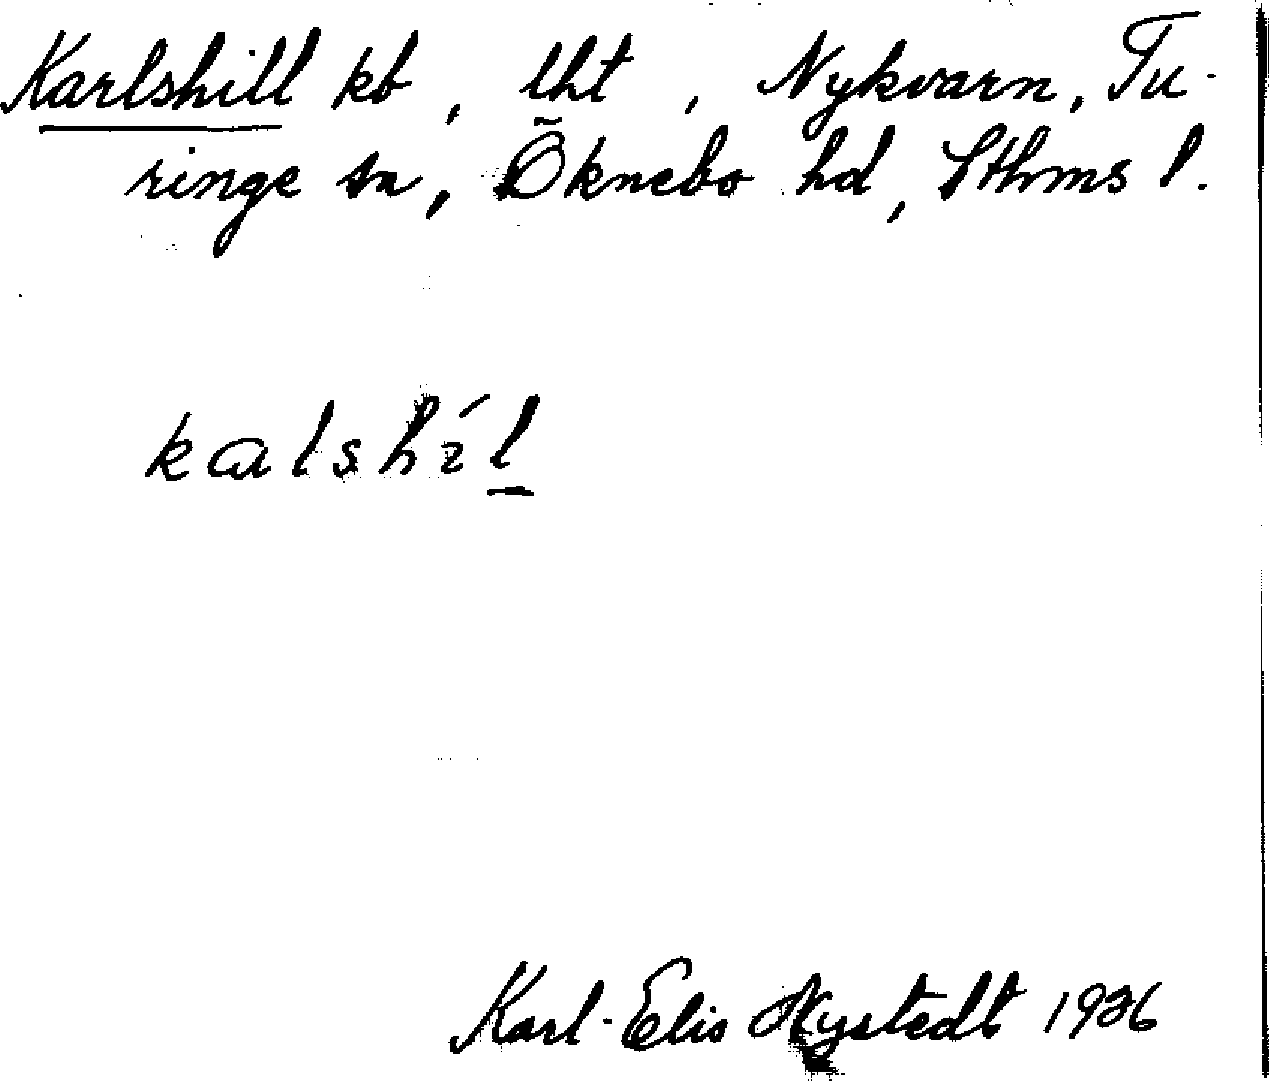 Karlshill kb, lht, Nykvarn, Tu-
ringe sn, Öknebo hd, Sthms l.
kalshíl
Karl-Elis Nystedt 1936